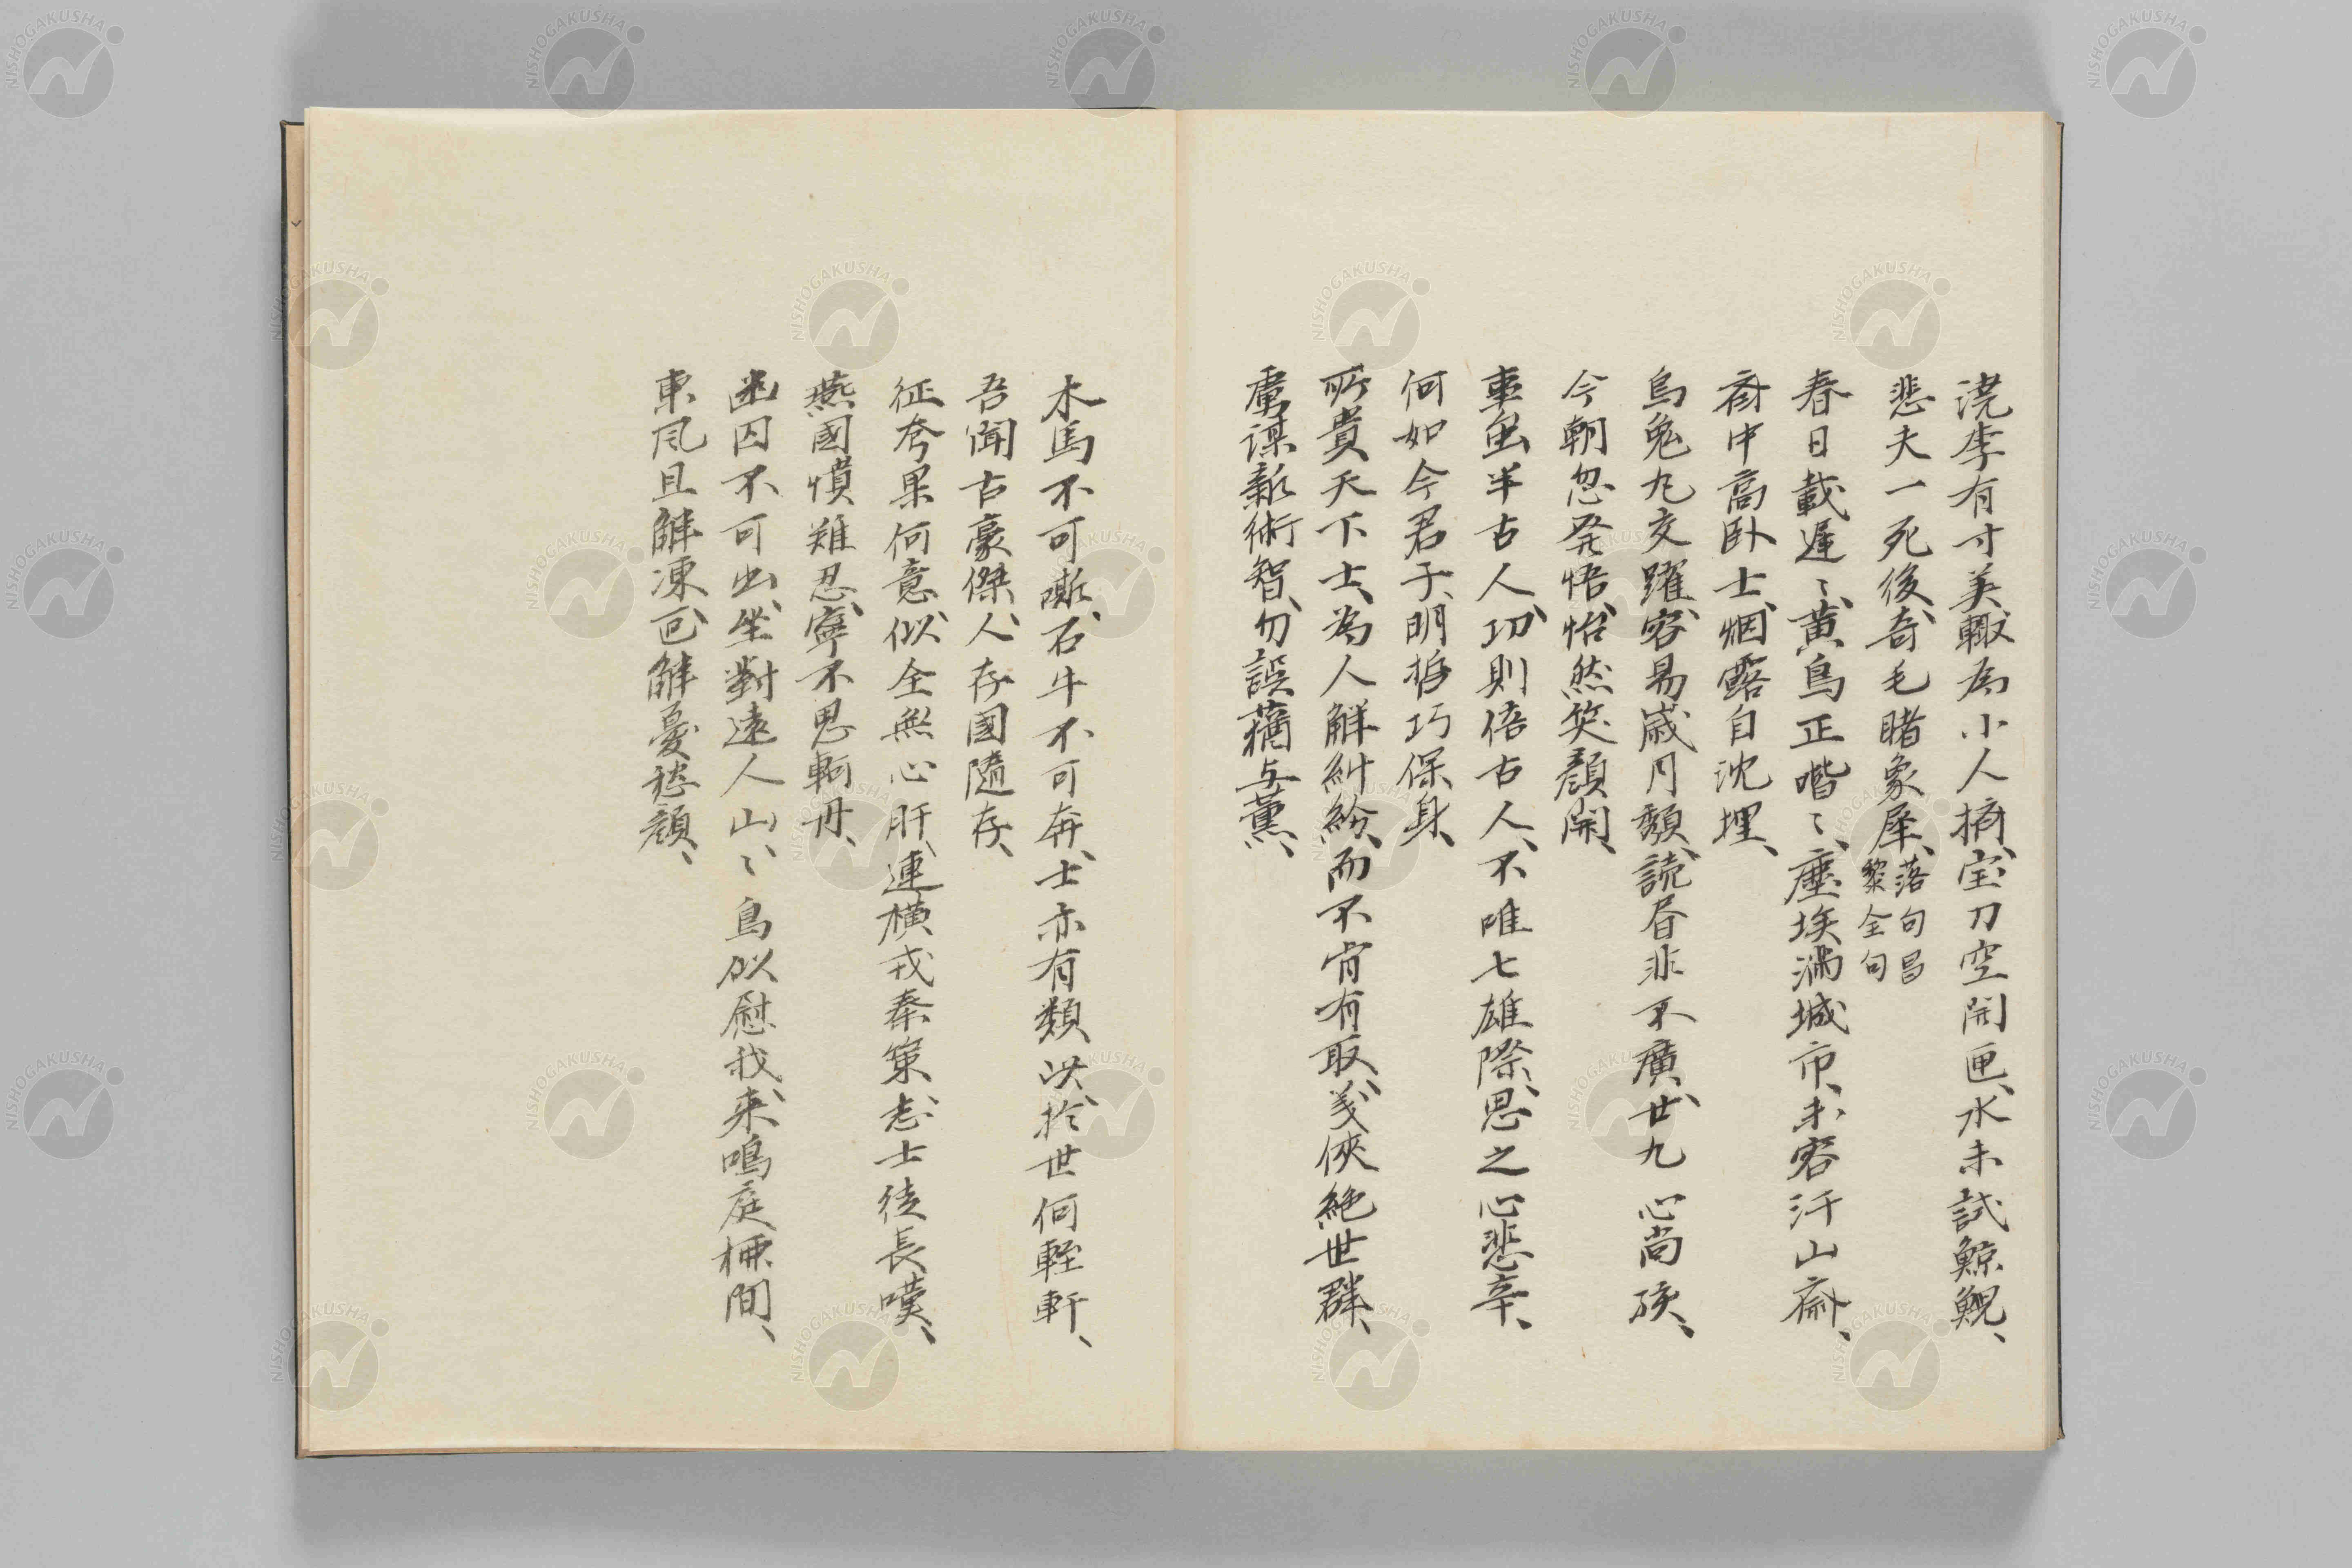 浇李有寸美輙為小人摘、宝刀空開匣、水未試鯨鯢、
悲夫一死後、奇毛睹象犀、落句昌黎全句
春日載遲〻、黄鳥正喈〻、塵埃満城市、未容汙山斎、
斎中高臥士、烟露自沈埋、
烏兔九交躍、容易歲月頽、読昏非不廣、廿九心尚孩、
今朝忽発悟、怡然笑顔開、
事虽半古人、功則倍古人、不唯七雄際、思之心悲辛、
何如今君子、明哲巧保身、
所貴天下士、為人解糾紛、而不肯有取、義俠絶世群、
虜謀新術智、勿誤蕕与薫、
木馬不可嘶、石牛不可奔、士亦有類此、於世何輊軒、
吾聞古豪傑、人存國隨存、
征夸果何意、似全無心肝、連横戎秦策、志士徒長嘆、
燕國憤難忍、寧不思軻丹、
幽囚不可出、坐對遠人山、〻鳥似慰我、来鳴庭梀間、
東風且解凍、可解憂愁顔、
NISHOGAKUSHA